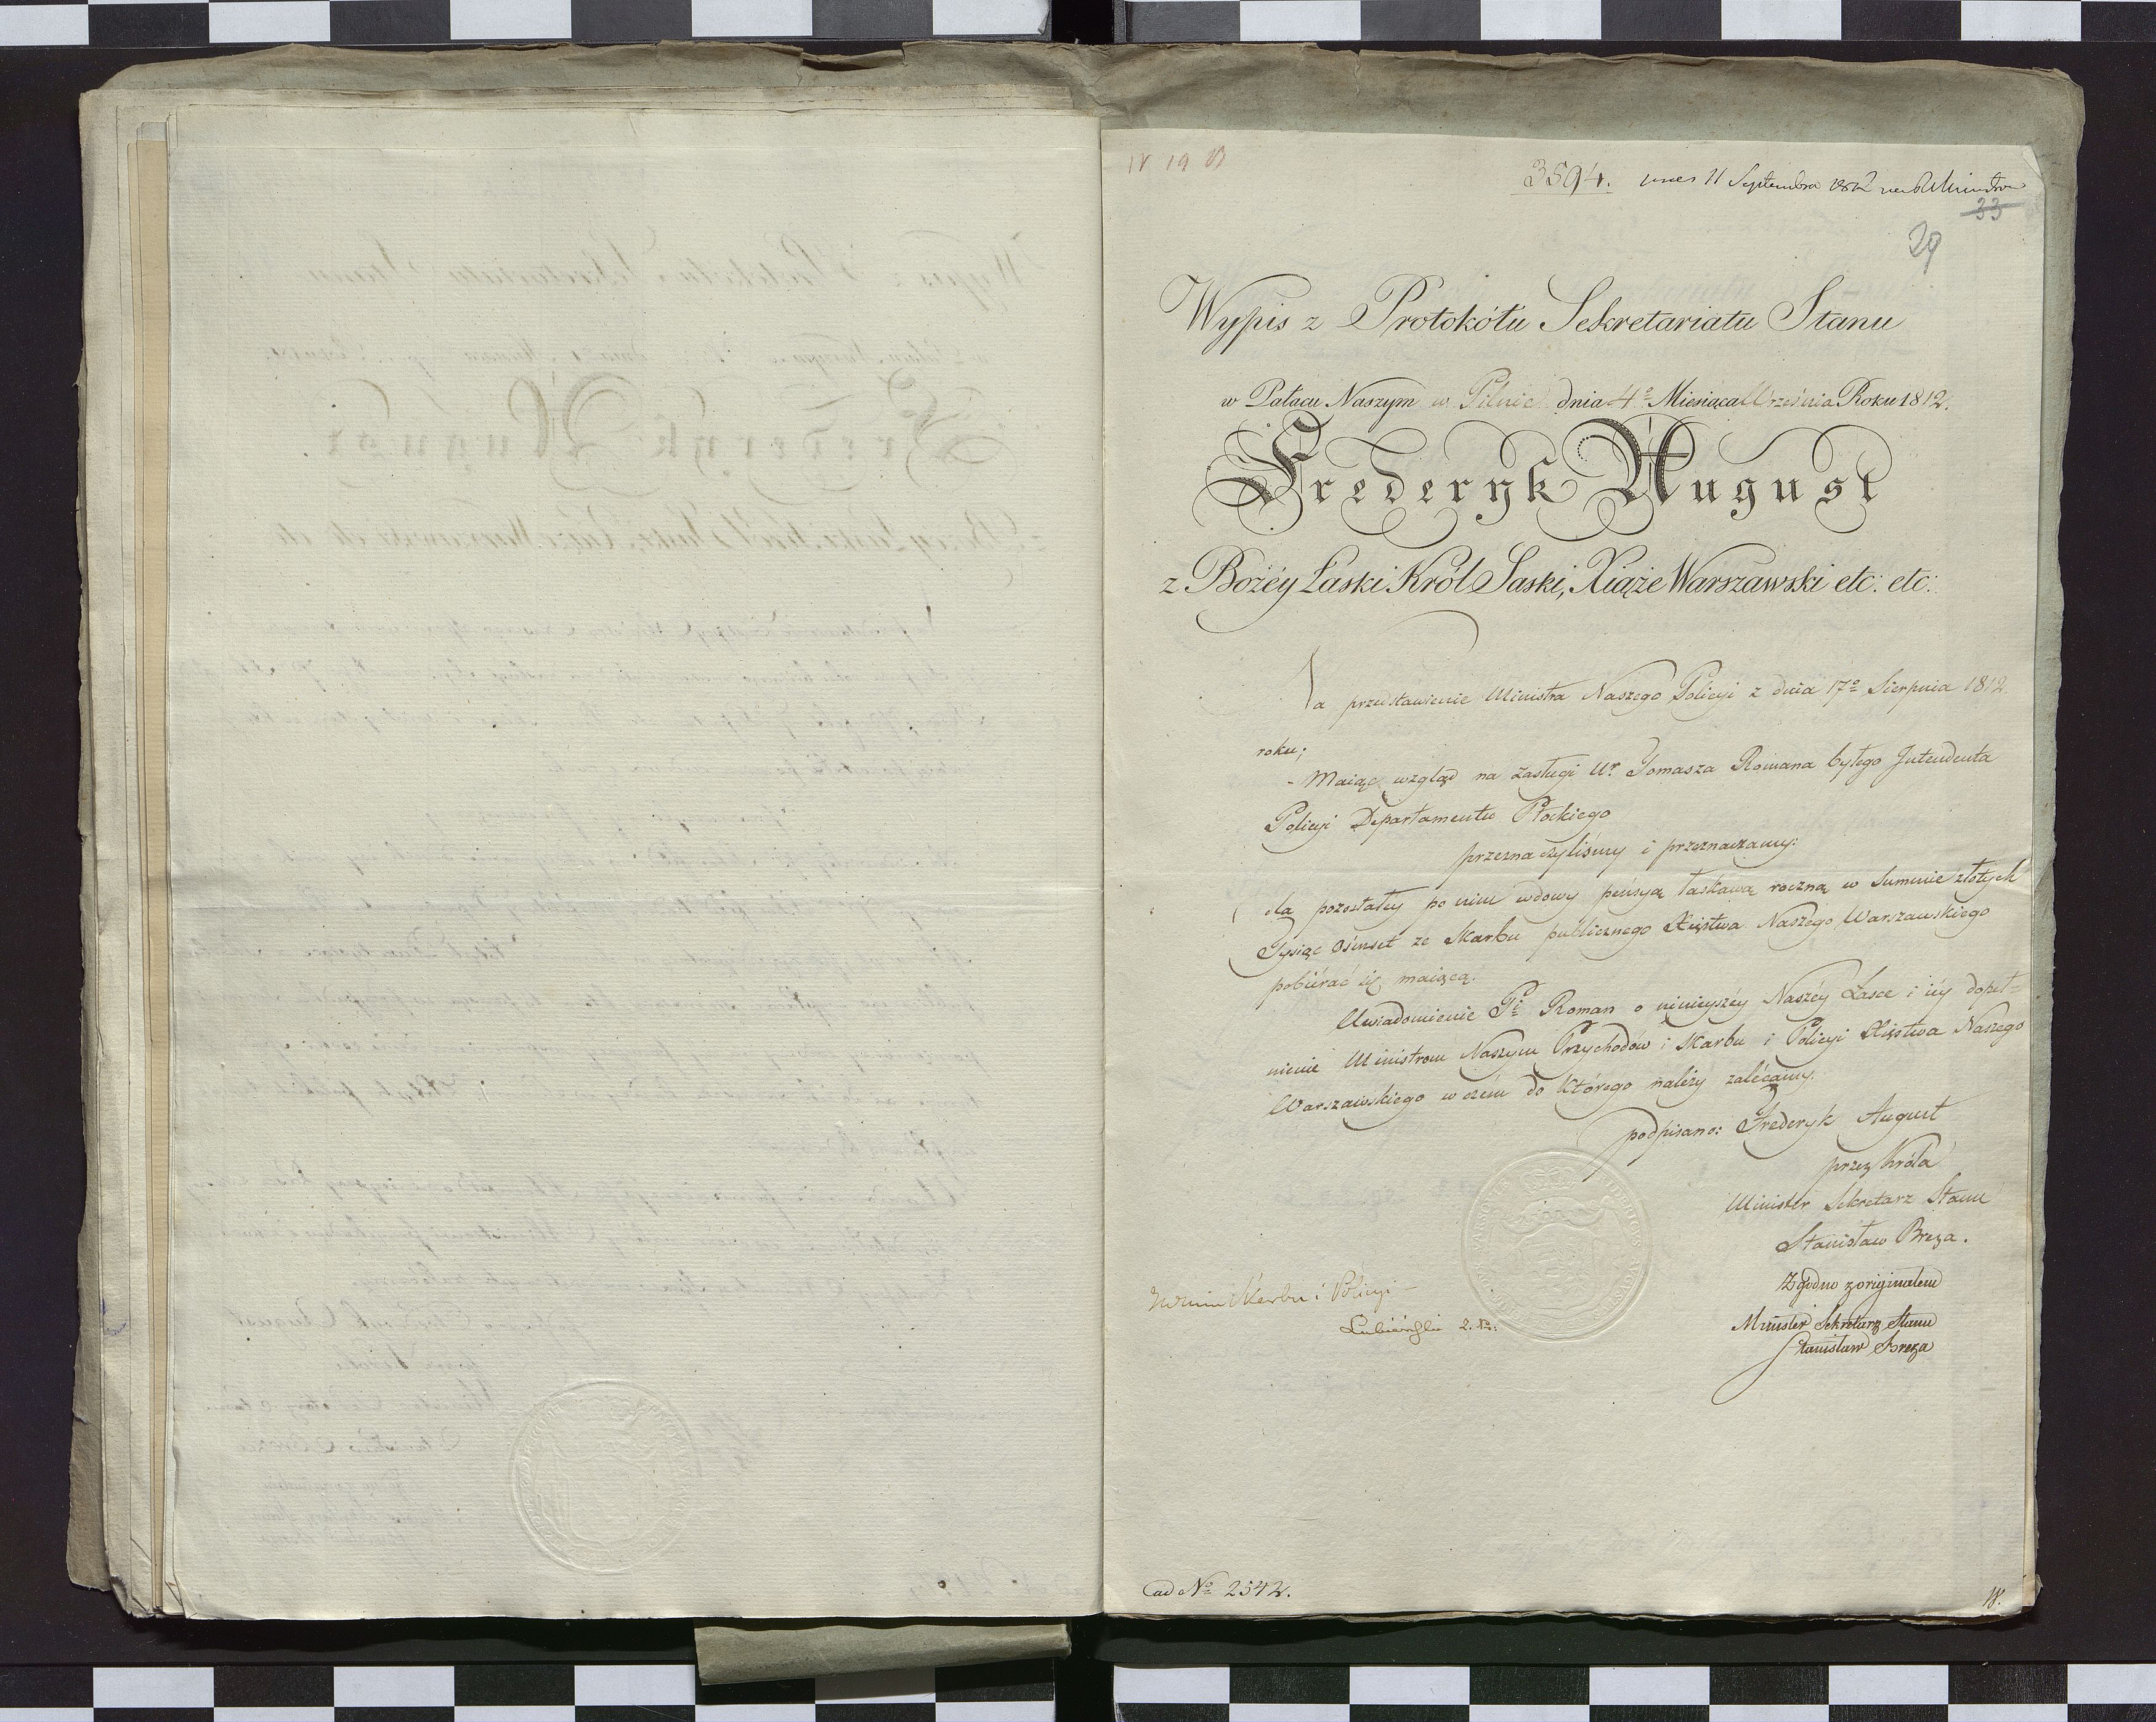 3594. 11 Septembra 1812
33
29
Wypis z Protokółu Sekretariatu Stanu
w Pałacu Naszym w Pilnic dnia 4º Miesiąca Września Roku 1812.
Frederyk August
z Bożéy Łaski Król Saski, Xiąże Warszawski etc: etc:
Na przedstawienie Ministra Naszego Policyi z dnia 17º Sierpnia 1812.
roku;
- Maiąc wzgląd na zasługi Ur Tomasza Romana byłego Jntendenta
Policyi Departamentu Płockiego
przeznaczyliśmy i przeznaczamy:
dla pozostałey po nim wdowy pensyą łaskawą roczną w Summie złotych
Tysiąc ośmset ze Skarbu publicznego Xięstwa Naszego Warszawskiego
pobiérać się maiącą.
Uwiadomienie Pi Roman o ninieyszéy Naszéy Łasce i iéy dopeł=
nienie Ministrom Naszym Przychodów i Skarbu i Policyi Xięstwa Naszego
Warszawskiego w czém do którego należy zalécamy.
podpisano: Frederyk August
przez Króla
Minister Sekretarz Stanu
Stanisław Breza.
Zgodno z originałem
Minister Sekretarz Stanu
Stanisław Breza
Skarbu i Policyi
Lubieński
ad Nº 2542.